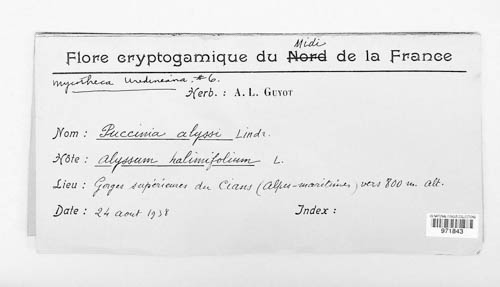 Midi
Flore cryptogamique du Nord de la France
Mycotheca Uredineana, #6.
Herb. : A. L. GUYOT
Nom : Puccinia alyssi Lindr.
Hôte : alyssum halimifolium L.
Lieu : Gorges supérieures du Cians (Alpes-maritimes) vers 800 m. alt.
Date : 24 aout 1938
Index :
US NATIONAL FUNGUS COLLECTIONS
971843